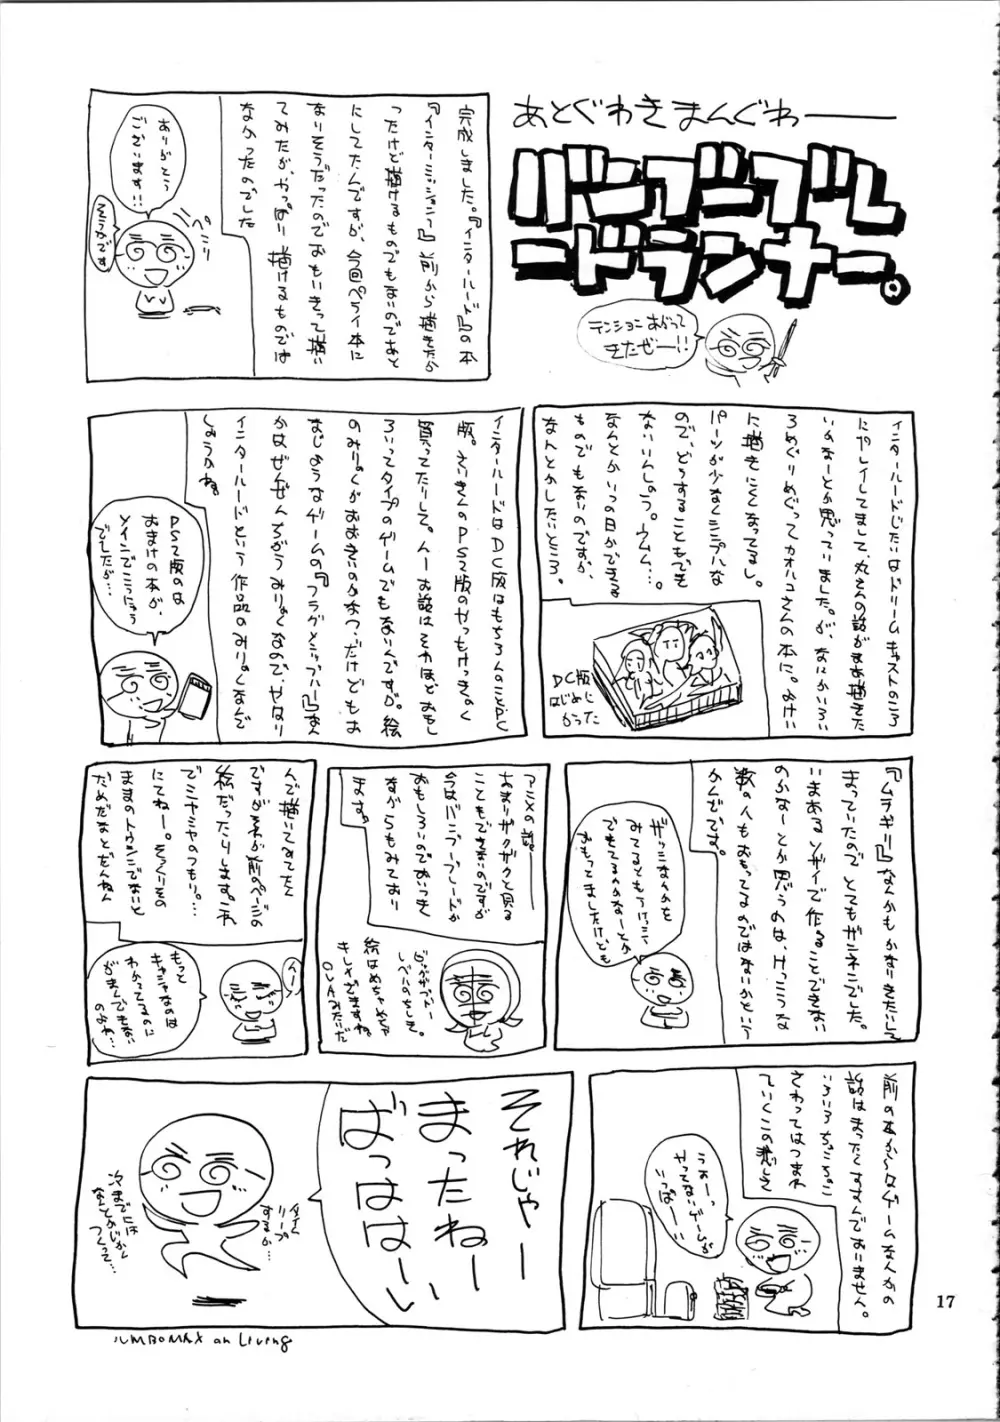 あとぐわきまんぐわ――
バンブーブレ
ードランナー。
テンションあがって
きたぜー!!
完成しました。『インターハート』の本
『インターミッション』前から描きたか
ったけど描けるものでもないのであと
にしてたんですが、今回ペライ本に
なりそうだったのでおもいきって描い
てみたが、やっぱり描けるものでは
なかったのでした
ありがとう
ございます!!
そうかです
ペこり
インターハートじたいはドリームキャストのころ
にプレイしてまして、丸さんの話がまあ描きた
いかなーとか思っていました。が、なにかいろい
ろめぐりめぐってカオハコさんの本に。おけい
に描きにくくなってるし。
パーツが少なくシンプルな
ので、どうすることもでき
ないしんしのう。ウムム…。
なんとかいつの日かできる
ものでもないのですが、
なんとかしたいところ。
DC版
はじめに
かった
インターハートはDC版はもちろんのことPC
版。さいきんのPS2版のやつもけっきょく
買ってたりして。んー お話はそれほどおもし
ろいってタイプのゲームでもないんですが。絵
のみりょくがおおきいのかなっ・だけどもお
なじようなゲームの『フラグメンツハート』なん
かはぜんぜんちがうみりょくなので、やはり
インターハートという作品のみりょくなんで
しょうかね。
PS2版のは
おまけの本が、
メインでこうにゅう
でしたが…
『ムラギリ』なんかもかなりきたいして
まっていたのでとてもザンネンでした。
いまあるソザイで作ることできない
のかなーとか思うのは、けっこうな
数の人もおもってるのではないかという
かんじです。
ギッシュなんかを
みてるともうけっこう
できてるんかなーとか
おもってましたけども
アニメの話。――
あまりザクザクと見る
こともできないのですが
今はバンブーブレードが
おもしろいのでおいっき
ながらもみており
ます。
絵はめちゃめちゃ
きれいすぎますね。
OVAみたいだ
んで描いてみてたく
ですがそれが前のページの
絵だったりします。これ
でミヤミヤのつもり…。
にてねー。そっくりその
ままのトウシンでないと
だめだなとぜんぜん
もっと
キャシャなのは
わかってるのに
がまんできない
のよね…
んー
前の本からゲームなんかの
話はまったくすすんでおりません。
いろいろちょこちょこ
さわってはつまれ
ていくこの悲しさ
うおーっ
やってないゲームが
いっぱーい!!
それじゃー
まったねー
ばっははーい
タイム
リープ
するか…
次までには
なんとかいかく
つくって…
JUMBOMAX an Living
17